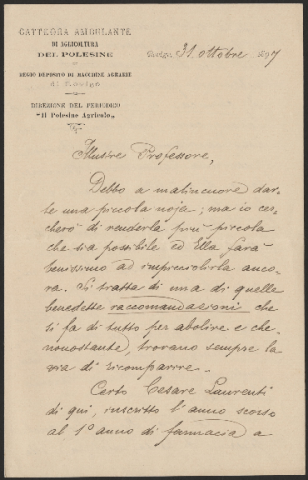 CATTEDRA AMBULANTE
DI AGRICOLTURA
DEL POLESINE
REGIO DEPOSITO DI MACCHINE AGRARIE
di Rovigo
DIREZIONE DEL PERIODICO
"Il Polesine Agricolo"
Rovigo, 31 ottobre 1897
Illustre Professore,
Debbo a malincuore dar-
le una piccola noja; ma io cer-
cherò di renderla più piccola
che sia possibile ed Ella farà
benissimo ad impicciolirla anco-
ra. Si tratta di una di quelle
benedette raccomandazioni che
si fa di tutto per abolire e che,
nonostante, trovano sempre la
via di ricomparire.
Certo Cesare Laurenti
di qui, inscritto l'anno scorso
al 1º anno di farmacia a